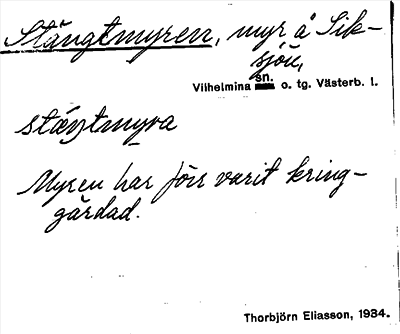 Stängtmyren, myr å Sik-
sjön,
Vilhelmina sn. o. tg. Västerb. l.
Myren har förr varit kring-
gärdad.
Thorbjörn Eliasson, 1934.